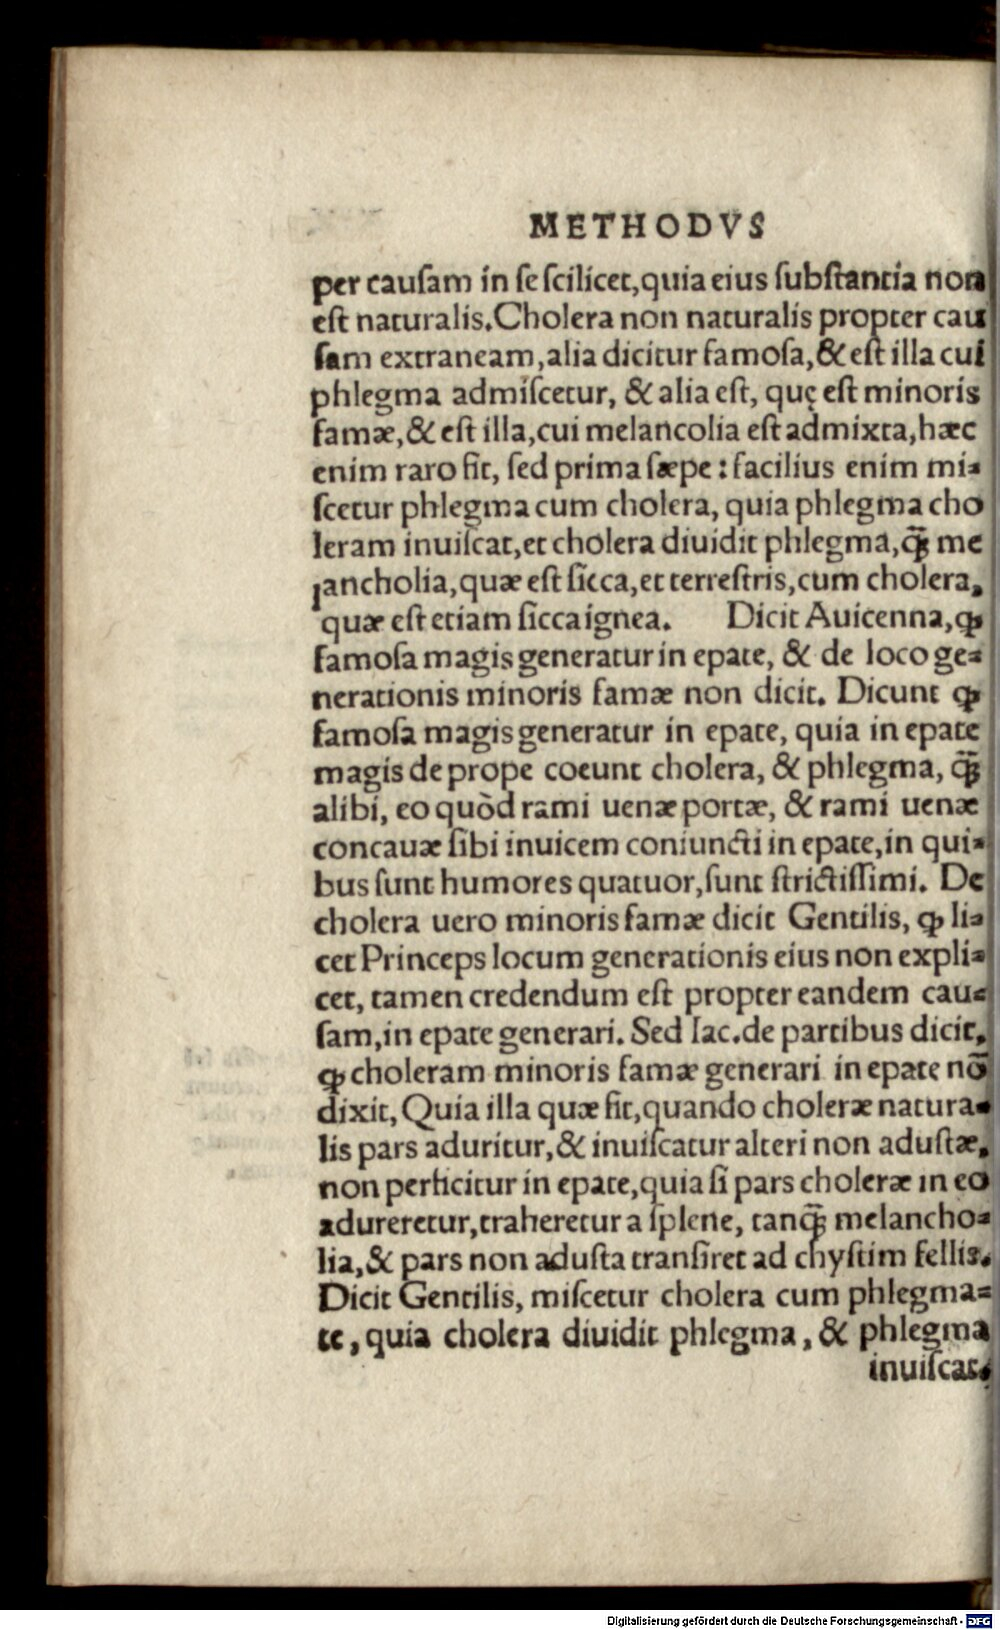 METHODVS
per causam in se scilicet, quia eius substantia non
est naturalis. Cholera non naturalis propter cau
sam extraneam, alia dicitur famosa, & est illa cui
phlegma admiscetur, & alia est, quę est minoris
famæ, & est illa, cui melancolia est admixta, hæc
enim raro fit, sed prima sæpe: facilius enim mi-
scetur phlegma cum cholera, quia phlegma cho
leram inuiscat, et cholera diuidit phlegma, q̃ꝫ me
lancholia, quæ est sicca, et terrestris, cum cholera,
quæ est etiam sicca ignea. Dicit Auicenna, ꝙ
famosa magis generatur in epate, & de loco ge-
nerationis minoris famæ non dicit. Dicunt ꝙ
famosa magis generatur in epate, quia in epate
magis de prope coeunt cholera, & phlegma, q̃ꝫ
alibi, eo quòd rami uenæ portæ, & rami uenæ
concauæ sibi inuicem coniuncti in epate, in qui-
bus sunt humores quatuor, sunt strictissimi. De
cholera uero minoris famæ dicit Gentilis, ꝙ li-
cet Princeps locum generationis eius non expli-
cet, tamen credendum est propter eandem cau-
sam, in epate generari. Sed Iac. de partibus dicit,
ꝙ choleram minoris famæ generari in epate nō
dixit, Quia illa quæ fit, quando choleræ natura-
lis pars aduritur, & inuiscatur alteri non adustæ,
non perficitur in epate, quia si pars choleræ in eo
adureretur, traheretur a splene, tanq̃ꝫ melancho-
lia, & pars non adusta transiret ad chystim fellis.
Dicit Gentilis, miscetur cholera cum phlegma-
te, quia cholera diuidit phlegma, & phlegma
inuiscat.
Digitalisierung gefördert durch die Deutsche Forschungsgemeinschaft - DFG